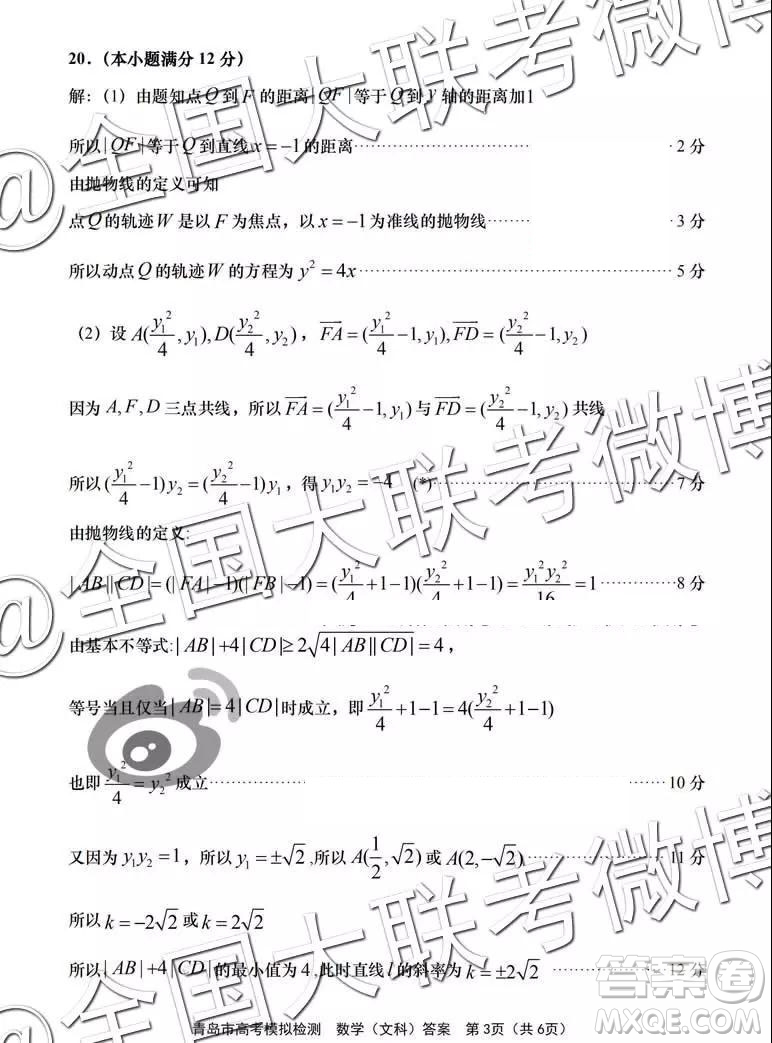 20．（本小题满分 12 分）
解：（1）由题知点 Q 到 F 的距离 |QF| 等于 Q 到 y 轴的距离加1
所以|QF|等于 Q 到直线 x=−1 的距离 ………… 2 分
由抛物线的定义可知
点 Q 的轨迹 W 是以 F 为焦点，以 x=−1 为准线的抛物线 ……… 3 分
所以动点 Q 的轨迹 W 的方程为 y²=4x ………… 5 分
（2）设 A(y₁²/4, y₁), D(y₂²/4, y₂)，FA→=(y₁²/4−1, y₁), FD→=(y₂²/4−1, y₂)
因为 A,F,D 三点共线，所以 FA→=(y₁²/4−1, y₁) 与 FD→=(y₂²/4−1, y₂) 共线
所以 (y₁²/4−1)y₂=(y₂²/4−1)y₁，得 y₁y₂=−4 (*) ………… 7 分
由抛物线的定义:
|AB||CD|=(|FA|−1)(|FB|−1)=(y₁²/4+1−1)(y₂²/4+1−1)=y₁²y₂²/16=1 ………… 8 分
由基本不等式:|AB|+4|CD|≥2√(4|AB||CD|)=4，
等号当且仅当|AB|=4|CD|时成立，即 y₁²/4+1−1=4(y₂²/4+1−1)
也即 y₁²/4=y₂² 成立 ………… 10 分
又因为 y₁y₂=1，所以 y₁=±√2 ,所以 A(1/2,√2) 或 A(2,−√2) ………… 11 分
所以 k=−2√2 或 k=2√2
所以|AB|+4|CD| 的最小值为 4,此时直线 l 的斜率为 k=±2√2 ………… 12 分
青岛市高考模拟检测 数学（文科）答案 第 3页（共 6页）
@全国大联考微博
@全国大联考微博
@全国大联考微博
答案卷